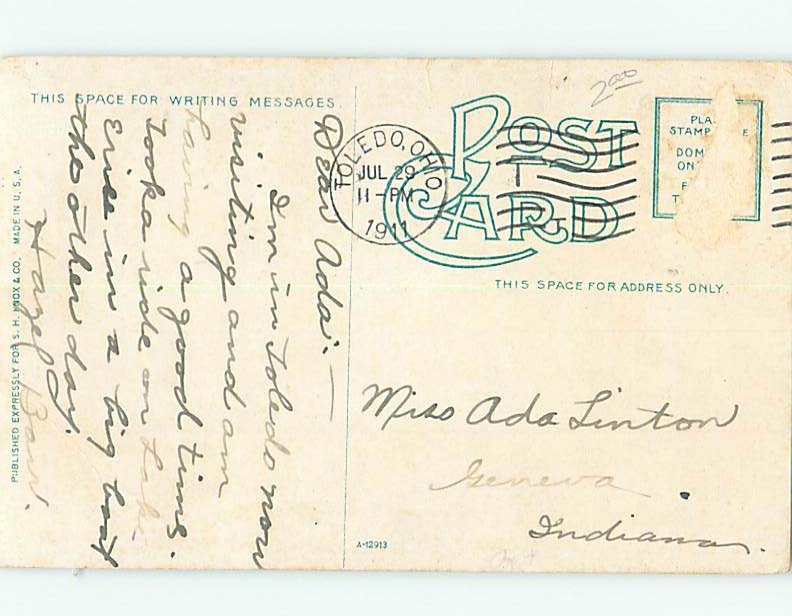 THIS SPACE FOR WRITING MESSAGES.
Dear Ada:—
I'm in Toledo now
visiting and am
having a good time.
Took a ride on Lake
Erie in a big boat
the other day.
Hazel
PUBLISHED EXPRESSLY FOR S. H. KNOX & CO. MADE IN U. S. A.
2.00
POST
CARD
TOLEDO, OHIO
JUL 29
11-PM
1911
PLA
STAMP E
DOM
ON
F
T
THIS SPACE FOR ADDRESS ONLY.
Miss Ada Linton
Geneva
Indiana.
A-12913